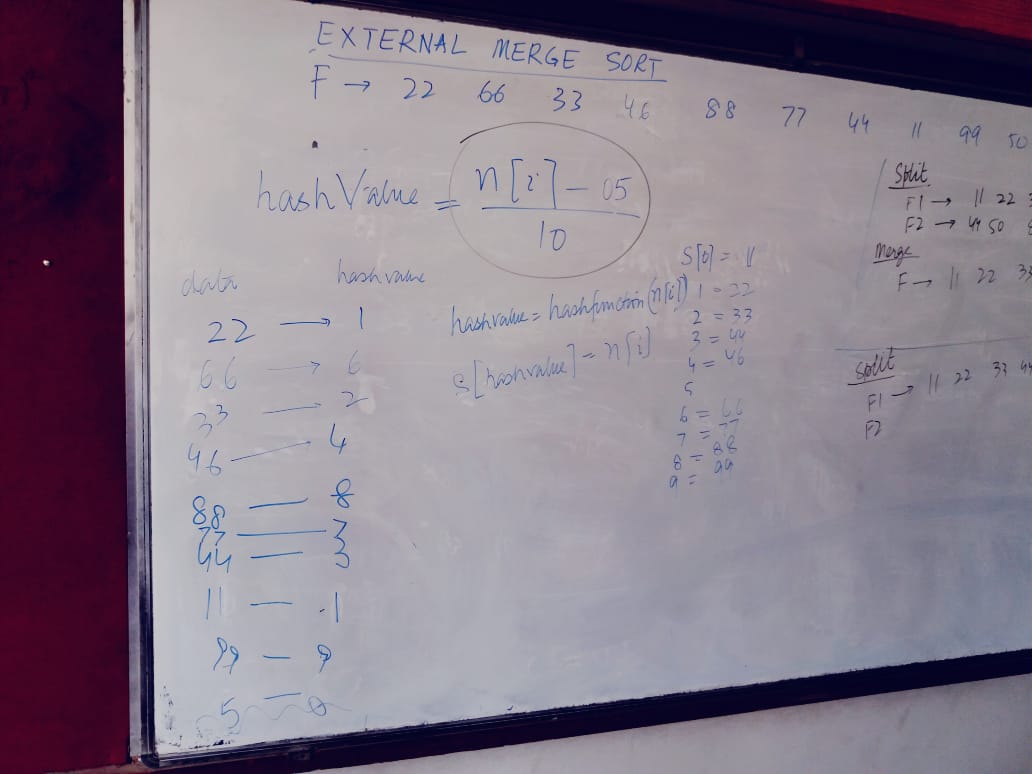 EXTERNAL MERGE SORT
F → 22 66 33 46 88 77 44 11 99 50
hashValue = n[i] - 05
10
data hashvalue
22 → 1
66 → 6
33 — 2
46 — 4
88 — 8
77 — 7
44 — 3
11 — .1
99 — 9
5 — 0
hashvalue = hashfunction(n[i])
s[hashvalue] = n[i]
S[0] = 11
1 = 22
2 = 33
3 = 44
4 = 46
5
6 = 66
7 = 77
8 = 88
9 = 99
Split
F1 → 11 22
F2 → 44 50
Merge
F → 11 22 33
Split
F1 → 11 22 33 44
F2